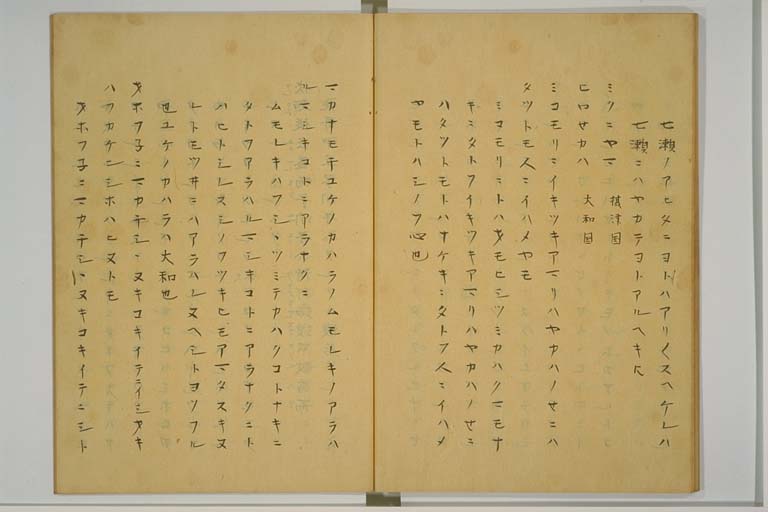 七瀬ノアヒタニヨトハアリヌスヘケレハ
七瀬ニハヤカテヨトアルヘキ
ミクニヤマ 摂津国
ヒロセカハ 大和国
ミコモリニイキツキアマリハヤカハノセニハ
タツトモ人ニイハメヤモ
ミコモリニトハオモヒシツミカハクマモナ
キニタトフイキツキアマリハヤカハノセニ
ハタツトモトハナケキニタトフ人ニイハメ
ヤモトハシノフ心也
マカナモテユケノカハラノムモレキノアラハ
ルマシキコトニアラナクニ
ムモレキハフシヽツミテカハクコトナキニ
タトフアラハルマシキコトニアラナクニト
ハヒトシレスシノフツキヒモアマタスキヌ
レトモツ井ニハアラハレヌヘシトヨソフル
也ユケノカハラハ大和也
オホフ子ニマカチシヽヌキコキイテシオキ
ハフカケンシホハヒヌトモ
オホフ子ニマカチシヽヌキコキイテニシト